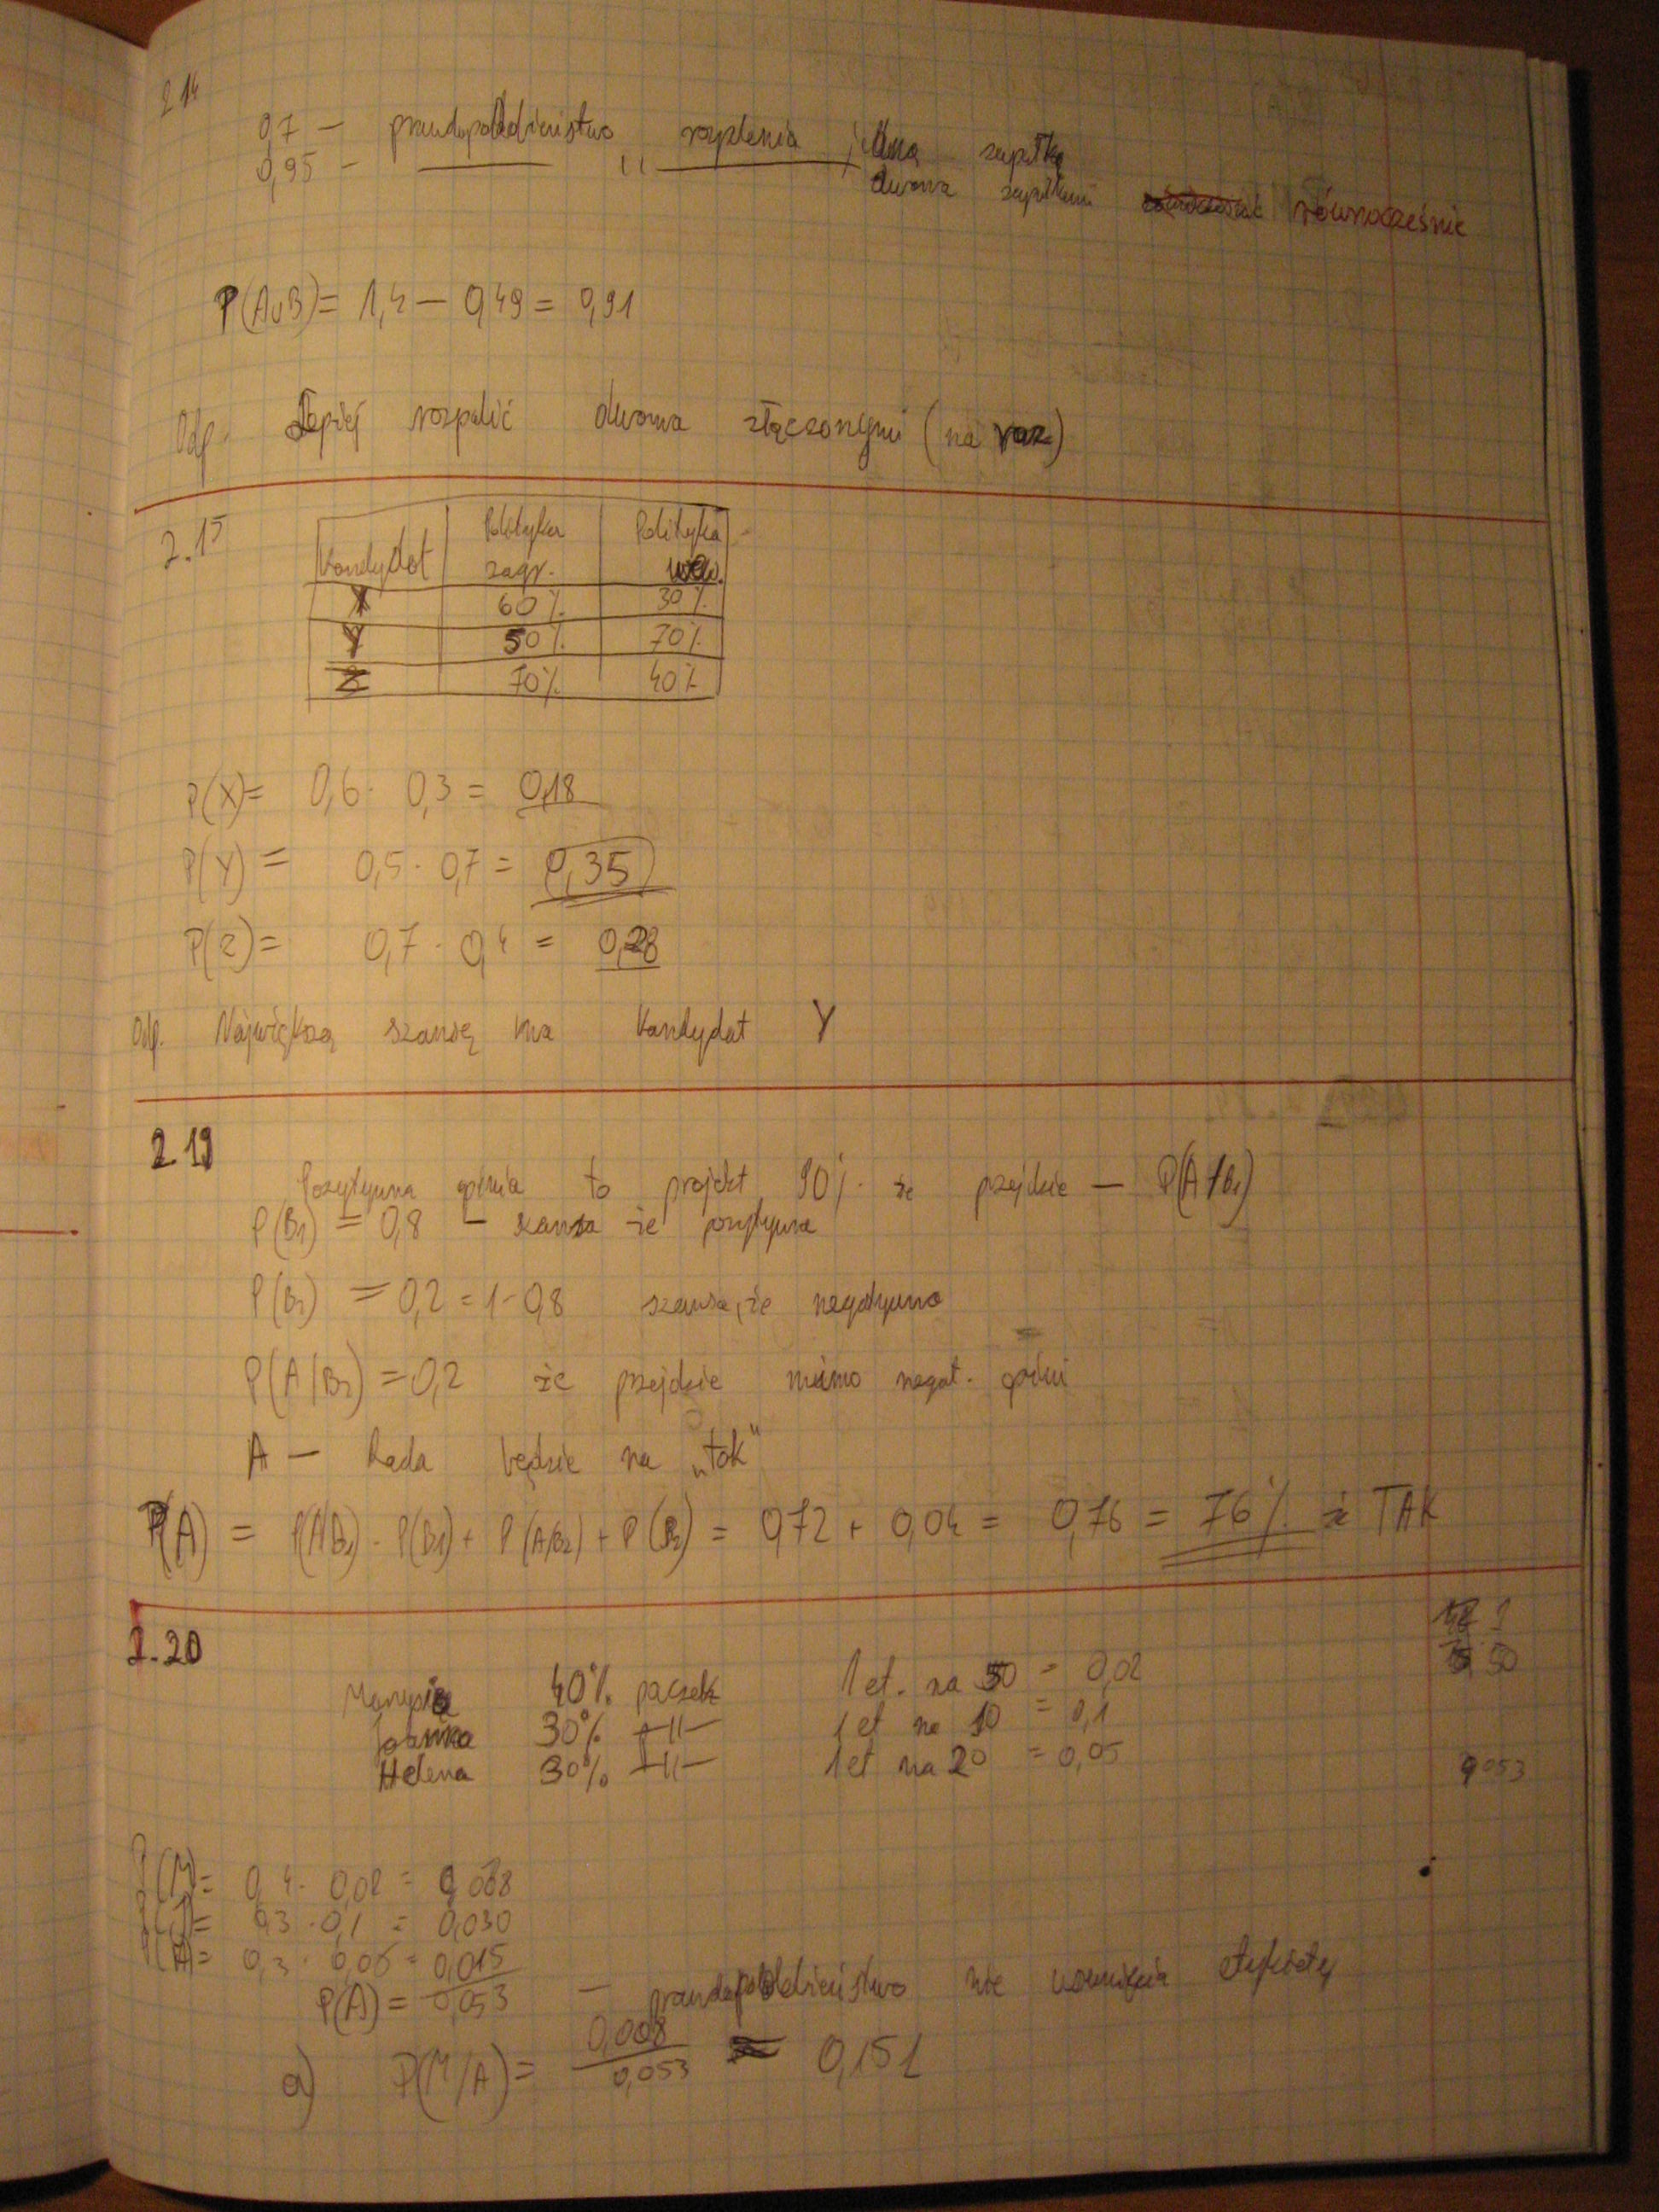 2.14
0,7 — prawdopodobieństwo rozpalenia jedną zapałką
0,95 — —— ,, —— dwoma zapałkami równocześnie
P(A∪B) = 1,4 — 0,49 = 0,91
Odp. Lepiej rozpalić dwoma złączonymi (na raz)
2.15
Kandydat | Polityka zagr. | Polityka wew.
X | 60% | 30%
Y | 50% | 70%
Z | 70% | 40%
P(X) = 0,6 · 0,3 = 0,18
P(Y) = 0,5 · 0,7 = 0,35
P(Z) = 0,7 · 0,4 = 0,28
Odp. Największą szansę ma kandydat Y
2.19
Pozytywna opinia to projekt 90% że przejdzie — P(A/B1)
P(B1) = 0,8 — szansa że pozytywna
P(B2) = 0,2 = 1-0,8 szansa, że negatywna
P(A/B2) = 0,2 że przejdzie mimo negat. opinii
A — Rada będzie na „tak"
P(A) = P(A/B1) · P(B1) + P(A/B2) + P(B2) = 0,72 + 0,04 = 0,76 = 76% że TAK
2.20
1
50
Marysia 40% paczek 1 et. na 50 = 0,02
Joanna 30% —||— 1 et na 10 = 0,1
Helena 30% —||— 1 et na 20 = 0,05
0,053
P(M) = 0,4 · 0,02 = 0,008
P(J) = 0,3 · 0,1 = 0,030
P(H) = 0,3 · 0,05 = 0,015
P(A) = 0,053 — prawdopodobieństwo nie etykiety
a) P(M/A) = 0,008 / 0,053 = 0,151